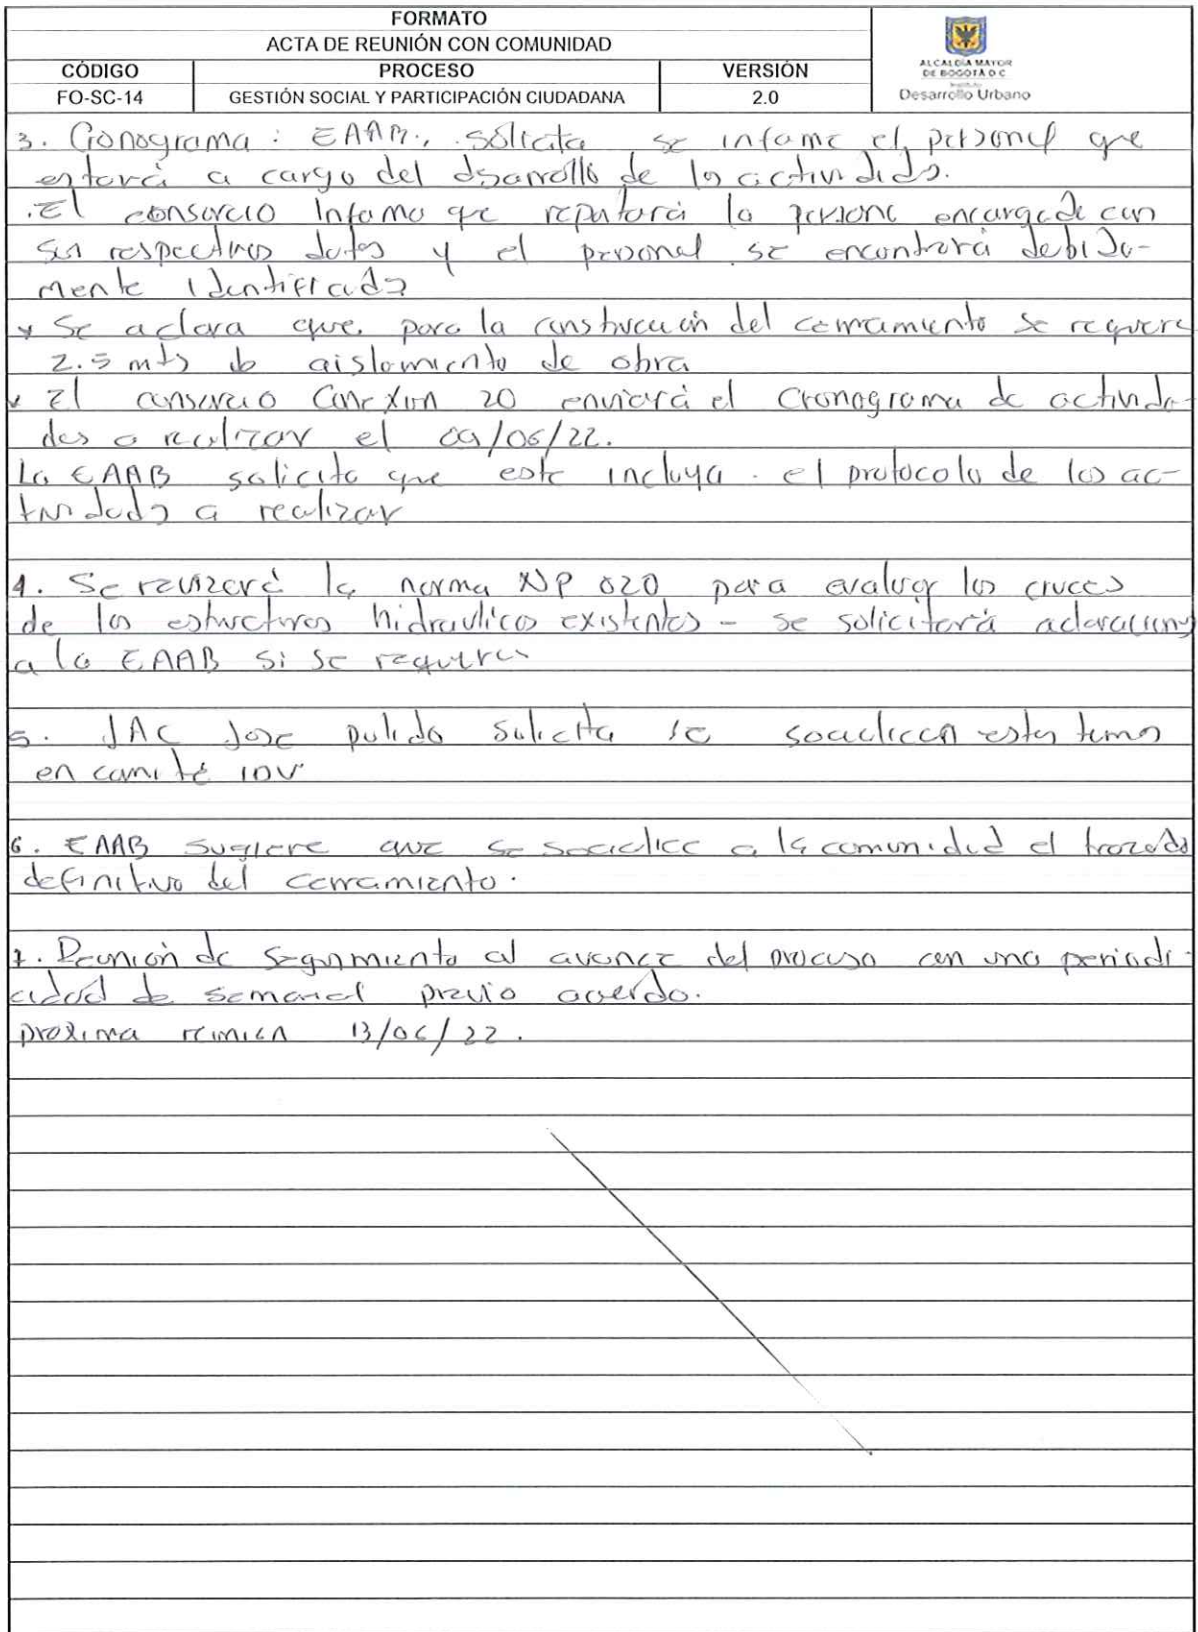 FORMATO
ACTA DE REUNIÓN CON COMUNIDAD
CÓDIGO PROCESO VERSIÓN
FO-SC-14 GESTIÓN SOCIAL Y PARTICIPACIÓN CIUDADANA 2.0
ALCALDÍA MAYOR
DE BOGOTÁ D.C.
Desarrollo Urbano
3. Cronograma: EAAB., solicita se informe el personal que
estará a cargo del desarrollo de las actividades.
.El consorcio informo que reportará la persona encargada con
sus respectivos datos y el personal se encontrará debida-
mente identificado
* Se aclara que para la construcción del cerramiento se requiere
2.5 mts de aislamiento de obra
* El consorcio Conexión 20 enviará el cronograma de activida-
des a realizar el 09/06/22.
La EAAB solicita que este incluya el protocolo de las ac-
tividades a realizar
4. Se revizará la norma NP 020 para evaluar los cruces
de las estructuras hidraulicas existentes - se solicitará aclaraciones
a la EAAB si se requiere
5. JAC Jose pulido solicita se socialicen estos temas
en comité IDU
6. EAAB sugiere que se socialice a la comunidad el trazado
definitivo del cerramiento.
7. Reunión de seguimiento al avance del proceso con una periodi-
cidad de semanal previo acuerdo.
proxima reunión 13/06/22.